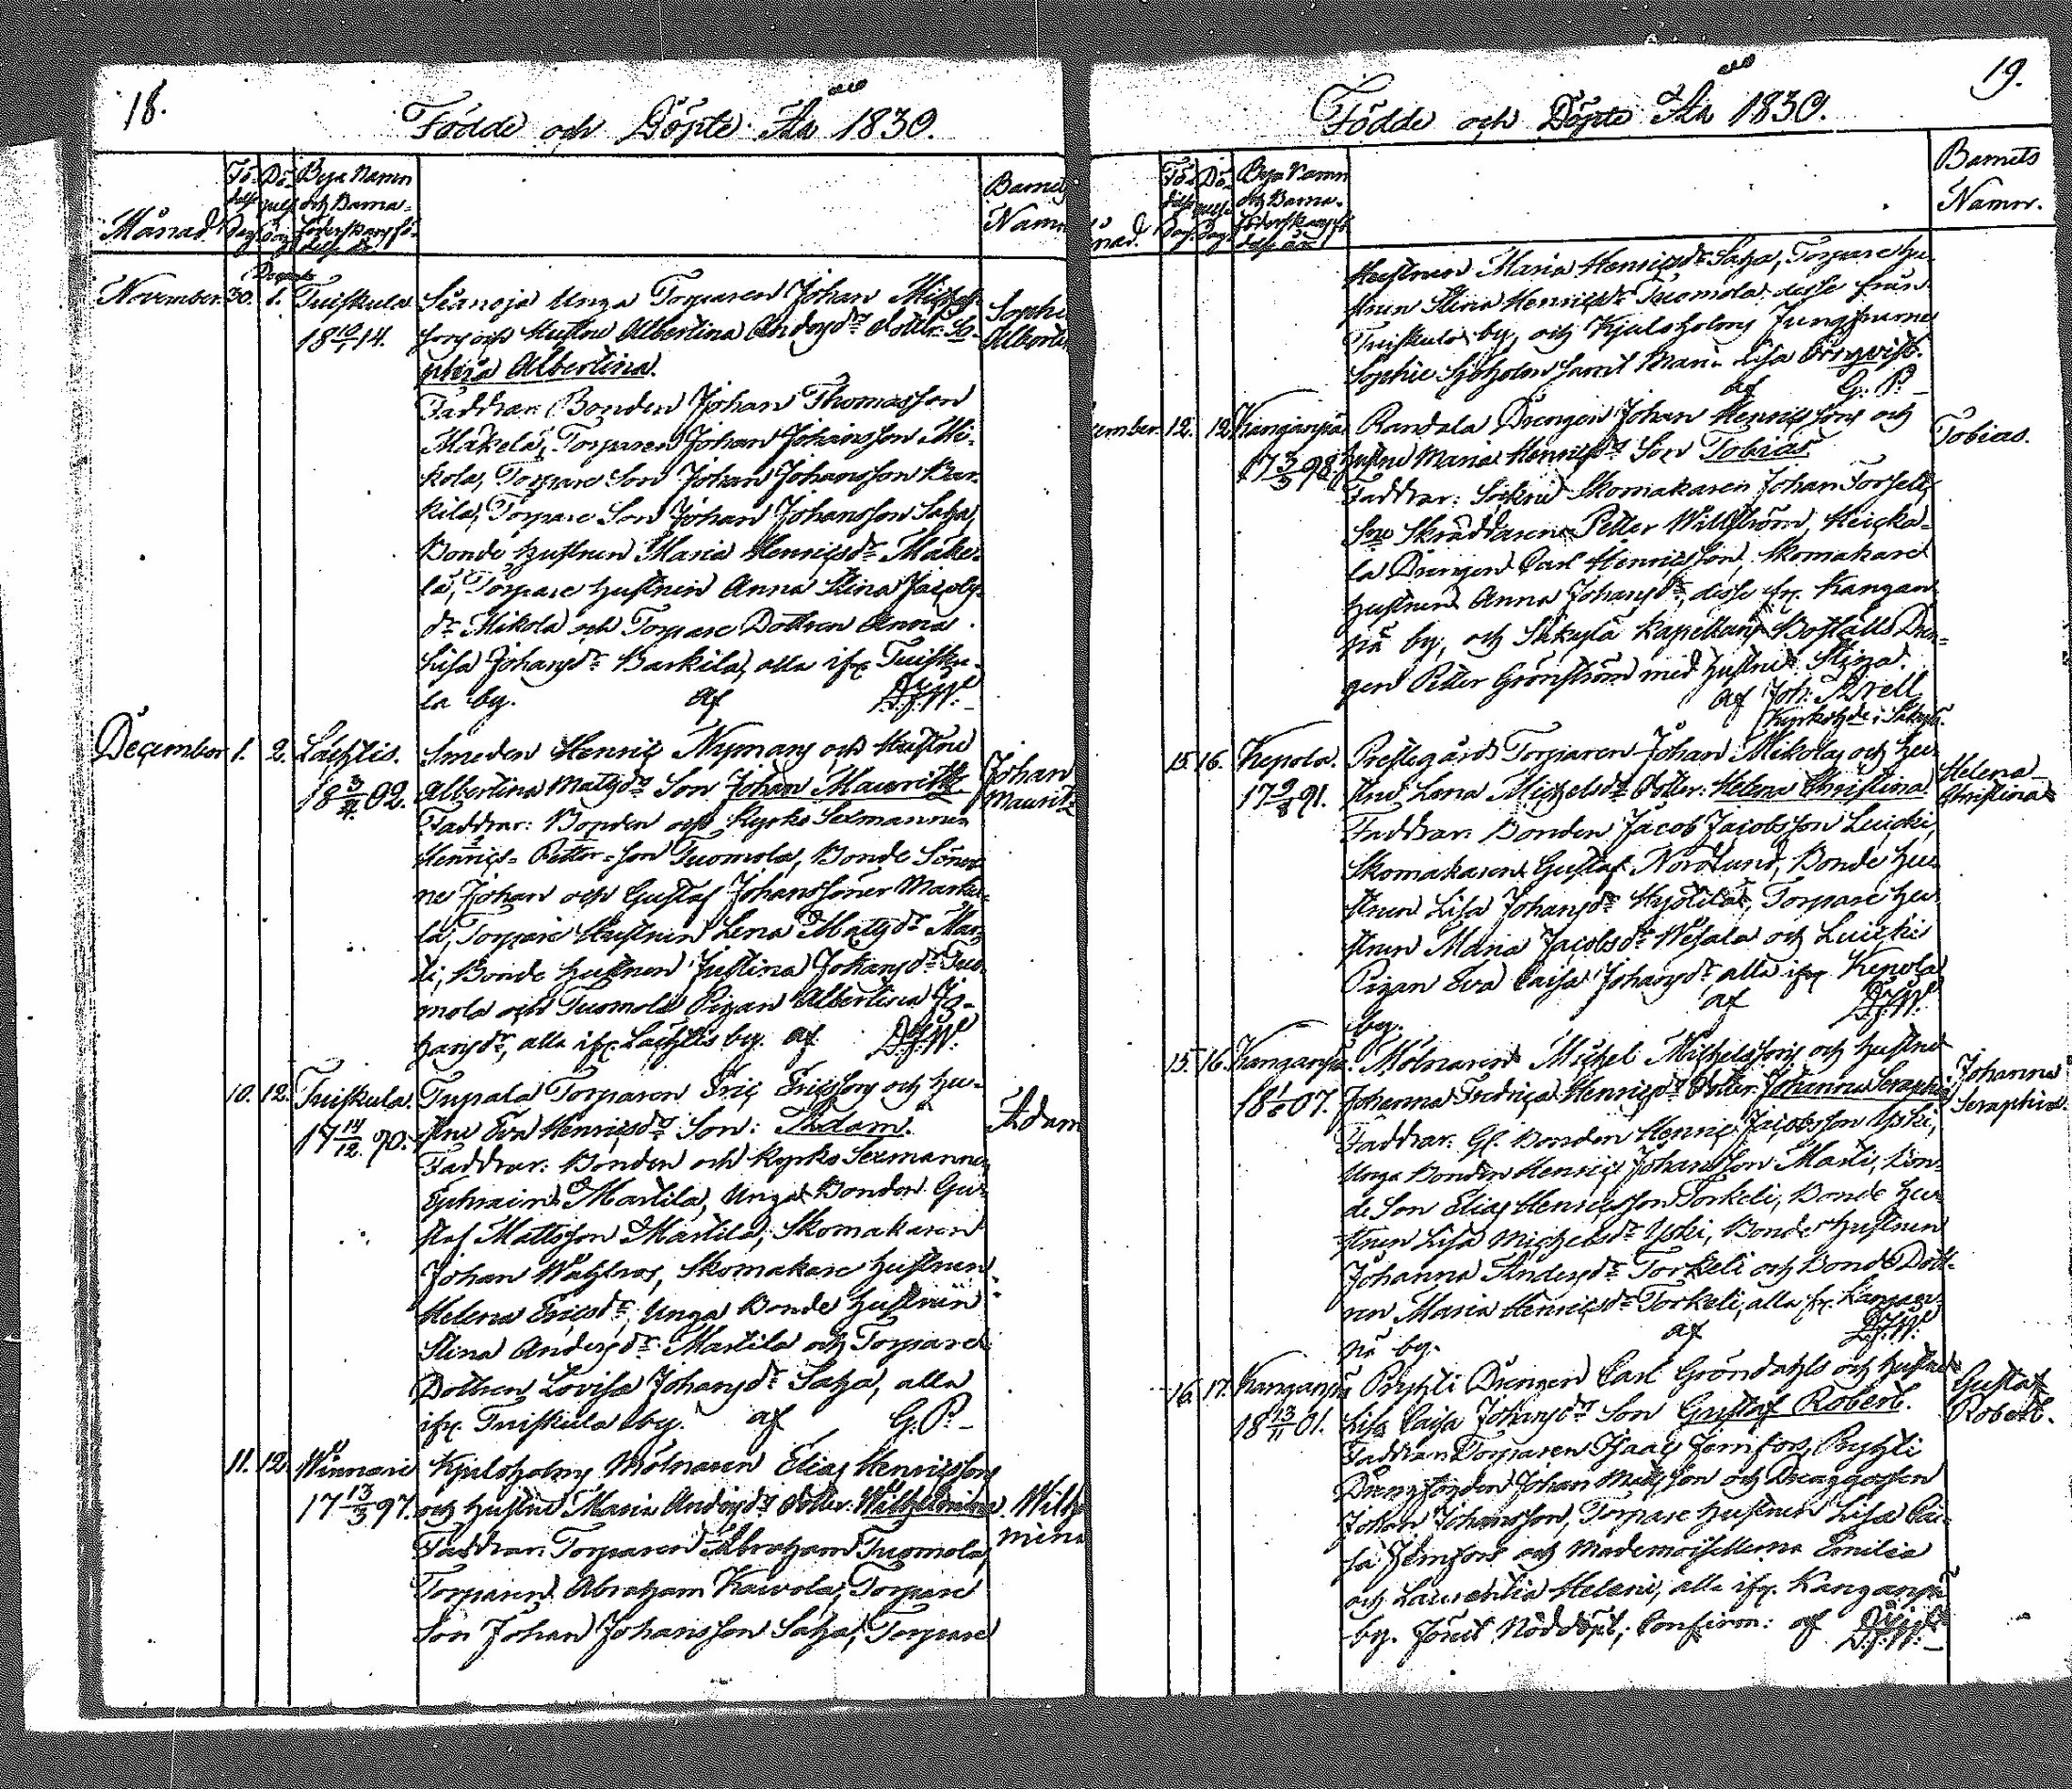 18.
Födde och Döpte År 1830.
Månad.
Fö-
delse
Dag
Dö-
pelse
Dag
Bya Namn
och Barna-
föderskans fö-
delse år.
Barnets
Namn
November.
30.
Decemb.
1.
Tuiskula
18 14.
Sianoja Unga Torparen Johan Michels-
sons och Hustru Albertina Andersdr dotter: So-
phia Albertina.
Sophi
Alberti
Faddrar: Bonden Johan Thomasson
Mäkelä, Torparen Johan Johansson Mi-
kola, Torpare Son Johan Johansson Bar-
kila, Torpare Son Johan Johansson Saha,
Bonde Hustrun Maria Henricsdr Mäke-
lä, Torpare Hustrun Anna Stina Jacobs-
dr Mikola och Torpare Dottren Anna
Lisa Johansdr Barkila, alla ifr. Tuisku-
la by. af D.J.W.
December
1.
2.
Lachtis.
18 3/4 02.
Smeden Henric Nymans och Hustru
Albertina Matsdr Son Johan Mauritz.
Johan
Mauritz
Faddrar: Bonden och Kyrko Sexmannen
Henrics-Petter-son Tuomola, Bonde Söner-
ne Johan och Gustaf Johanssöner Marki-
lä, Torpare Hustrun Lena Matsdr Mar-
ti, Bonde Hustrun Justina Johansdr Tuo-
mola och Tuomola Pigan Albertina Jo-
hansdr, alla ifr. Lachtis by. af D.J.W.
10.
12.
Tuiskula.
17 14/12 90.
Tupala Torparen Eric Ericssons och Hu-
stru Eva Henricsdr Son: Adam.
Adam
Faddrar: Bonden och Kyrko Sexmannen
Ephraim Martila, Unga Bonden Gu-
staf Mattsson Martila, Skomakaren
Johan Wahlros, Skomakare Hustrun
Helena Ericsdr, Unga Bonde Hustrun
Stina Andersdr Martila och Torpare
Dottren Lovisa Johansdr Saha, alla
ifr. Tuiskula by. af G.P.
11.
12
Winnari
17 13/3 97.
Kjulsholms Mölnaren Elias Henricssons
och Hustru Maria Andersdr dotter: Wilhelmina.
Wilhe
mina
Faddrar: Torparen Abraham Tuomola,
Torparen Abraham Kawola, Torpare
Son Johan Johansson Saha, Torpare
19.
Födde och Döpte År 1830.
nad.
Fö-
delse
Dag.
Dö-
pelse
Dag.
Bya Namn
och Barna-
föderskans fö-
delse år
Barnets
Namn.
Hustrun Maria Henricsdr Saha, Torpare Hu-
strun Stina Henricsdr Tuomola disse från
Tuiskula by, och Kjulsholms Jungfrurne
Sophie Sjöholm samt Maria Lisa Örnqvist.
af G.P.
cember.
12.
12
Kanganpä
17 3/3 98.
Randala Drengen Johan Henricssons och
Hustru Maria Henricsdr Son Tobias
Tobias.
Faddrar: Sockne Skomakaren Johan Forsell,
Sne Skräddaren Petter Willström, Heicki-
la Drengen Carl Henricsson, Skomakare
Hustrun Anna Johansdr, disse ifr. Kangan-
pä by, och Säkylä Kapellans Boställs Dren-
gen Petter Grönström med Hustru Stina.
af Joh. Brell
Kyrkoh:de i Säkylä.
15.
16.
Kepola.
17 91.
Prestegårds Torparen Johan Mikolas och Hu-
stru Lena Michelsdr dotter: Helena Christina.
Helena
Christina
Faddrar: Bonden Jacob Jacobsson Luicki,
Skomakaren Gustaf Nordlund, Bonde Hu-
strun Lisa Johansdr Hyötilä, Torpare Hu-
strun Maria Jacobsdr Wesala och Luicki
Pigan Eva Caisa Johansdr alla ifr. Kepola
by. af D.J.W.
15.
16.
Kanganpä.
18 07.
Mölnaren Michel Michelssons och Hustru
Johanna Fredrica Henricsdr dotter: Johanna Seraphia
Johanna
Seraphia.
Faddrar: Gl. Bonden Henric Jacobsson Yski,
Unga Bonden Henric Johansson Marti, Bon-
de Son Elias Henricsson Torkeli, Bonde Hu-
strun Lisa Michelsdr Yski, Bonde Hustrun
Johanna Andersdr Torkeli och Bonde Dott-
ren Maria Henricsdr Torkeli, alla fr. Kangan-
pä by. af D.J.W.
16.
17.
Kanganpä
18 13/11 01.
Pryhti Drengen Carl Gröndahls och Hustru
Lisa Caisa Johansdr Son Gustaf Robert.
Gustaf
Robert.
Faddrar: Torparen Isaac Jernfors, Pryhti
Drengsonden Johan Matsson och Drenggossen
Johan Johansson, Torpare Hustrun Lisa Cai-
sa Jernfors och Mademoisellerna Emilia
och Laurentia Heleni, alla ifr. Kanganpä
by. Förut Nöddöpt, Confirm: af D.J.W.